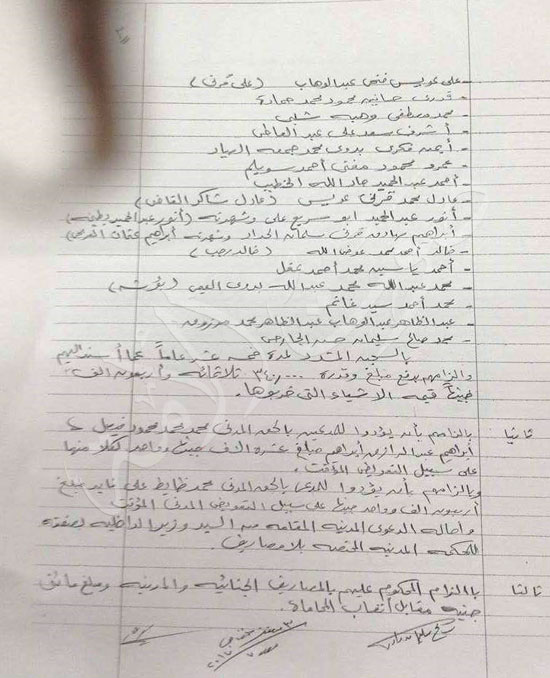 - على عويس فتحى عبد الوهاب (على قرنى)
- محمود محمد حمادة
- محمد مصطفى وهبه شلبى
- أشرف سعد على عبد العاطى
- أيمن فكرى بدوى محمد جمعه الصياد
- عمرو محمود مفتى أحمد سويلم
- أحمد عبد الحميد جاد الله الخطيب
- عادل محمد قرنى عويس (عادل شاكر القاضى)
- أنور عبد المجيد ابو سريع على وشهرته (أنور عبد الحميد)
- ابراهيم قرنى سلمان الحداد وشهرته ابراهيم
- خالد أحمد محمد عوض الله (خالد رجب)
- أحمد ياسين محمد أحمد عقل
- محمد عبد الله محمد عبد الله بدوى
- محمد أحمد سيد غانم
- عبد الظاهر عبد الوهاب عبد الظاهر محمد
- محمد صالح سليمان حسن
بالسجن المشدد لمدة خمسة عشر عاماً عما أسند اليهم
والزامهم بدفع مبلغ وقدره ٣٤٠٠٠٠ ثلاثمائة وأربعون الف
جنيهاً قيمه الاشياء التى خربوها.
ثانيا بالزامهم بأن يؤدوا للمدعين بالحق المدنى محمد محمد محمود
ابراهيم ابراهيم مبلغ عشرة الاف جنيه وواحد لكلا منها
على سبيل التعويض المؤقت.
وبالزامهم بأن يؤدوا للمدعى بالحق المدنى محمد على مبلغ
أربعون الف وواحد جنيهاً على سبيل التعويض المدنى المؤقت
واحاله الدعوى المدنيه المقامه من السيد وزير الداخليه بصفته
للمحكمه المدنيه المختصه بلا مصاريف.
ثالثا بالزام المحكوم عليهم بالمصاريف الجنائيه والمدنيه ومبلغ مائتى
جنيه مقابل أتعاب المحاماة.